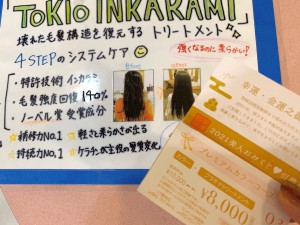 「TOKIO INKARAMI」
壊れた毛髪構造を復元する トリートメント
4STEPのシステムケア
強くなるのに柔らかい?
・特許技術インカラミ
・毛髪強度回復140%
・ノーベル賞受賞成分
☆補修力No.1 ☆軽さ柔らかさが出る
☆持続力No.1 ☆ケラチンが主役の髪質変化
幸運・金運之
2021美人おみくじ
プレミアムカラーコース
カラー
¥8,000